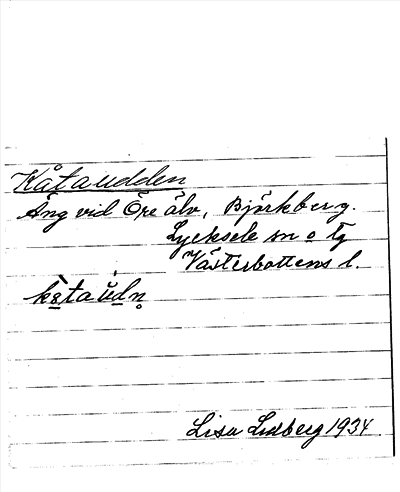 Kåtaudden
Äng vid Öre älv, Björkberg.
Lycksele sn o Tg
Västerbottens l.
Lisa Lidberg 1934